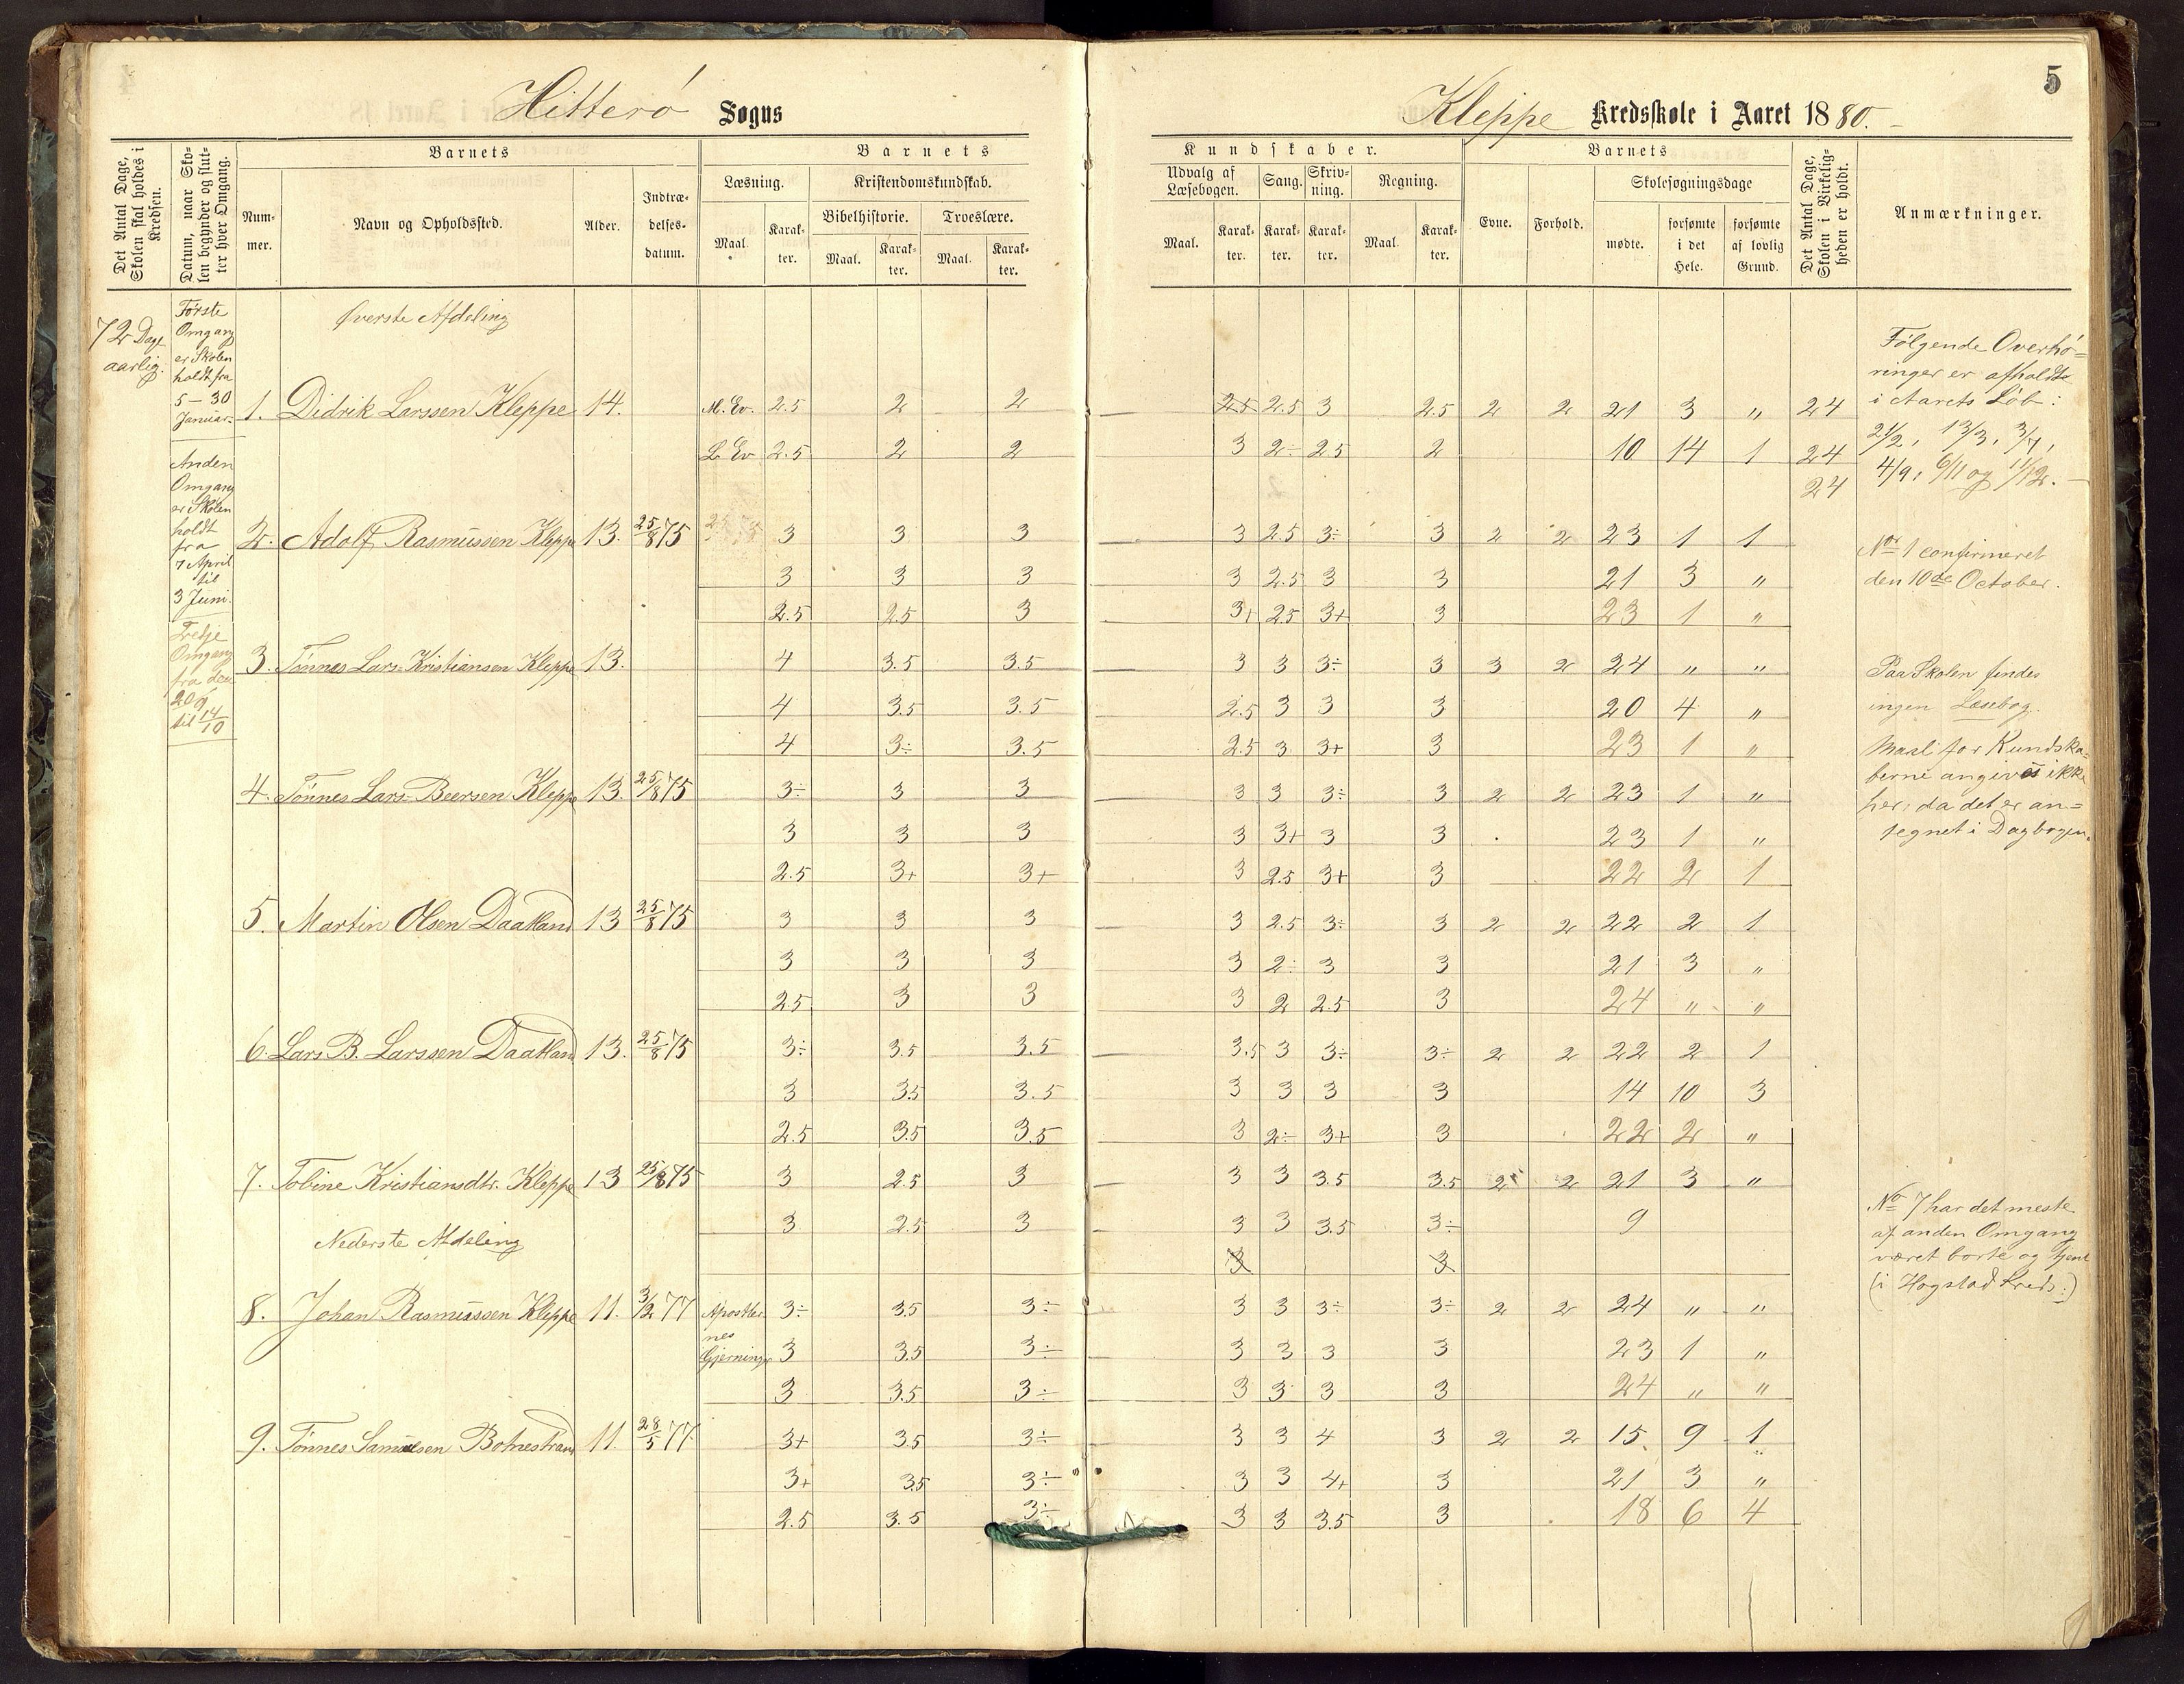 Hitterø Sogns
Kleppe Kredsskole i Aaret 1880.
5
Det Antal Dage, Skolen skal holdes i Kredsen.
Datum, naar Skolen begynder og slutter hver Omgang.
Barnets
Nummer.
Navn og Opholdssted.
Alder.
Indtrædelsesdatum.
Barnets
Læsning.
Maal.
Karakter.
Kristendomskundskab.
Bibelhistorie.
Maal.
Karakter.
Troeslære.
Maal.
Karakter.
Kundskaber.
Udvalg af Læsebogen.
Maal.
Karakter.
Sang.
Karakter.
Skrivning.
Karakter.
Regning.
Maal.
Karakter.
Barnets
Evne.
Forhold.
Skolesøgningsdage
mødte.
forsømte i det Hele.
forsømte af lovlig Grund.
Det Antal Dage, Skolen i Virkeligheden er holdt.
Anmærkninger.
72 Dage
aarlig.
Første
Omgang
er Skolen
holdt fra
5 – 30
Januar.
Anden
Omgang
er Skolen
holdt
fra
7 April
til
3 Juni.
Tredje
Omgang
fra den
20/9
til 14/10
Øverste Afdeling
1. Didrik Larssen Kleppe 14. M. Ev. 2.5 2 2 2.5 2.5 3 2.5 2 2 21 3 " 24
L. Ev 2.5 2 2 3 2÷ 2.5 2 10 14 1 24
24
2. Adolf Rasmussen Kleppe 13. 25/8 75 3 3 3 3 2.5 3÷ 3 2 2 23 1 1
3 3 3 3 2.5 3 3 21 3 "
2.5 2.5 3 3+ 2.5 3+ 3 23 1 "
3. Tønnes Lars Kristiansen Kleppe 13. 4 3.5 3.5 3 3 3÷ 3 3 2 24 " "
4 3.5 3.5 2.5 3 3 3 20 4 "
4 3÷ 3.5 2.5 3 3+ 3 23 1 "
4. Tønnes Lars Beersen Kleppe 13. 25/8 75 3÷ 3 3 3 3 3÷ 3 2 2 23 1 "
3 3 3 3 3+ 3 3 23 1 "
2.5 3+ 3+ 3 2.5 3+ 3 22 2 1
5. Martin Olsen Daatland 13 25/8 75 3 3 3 3 2.5 3÷ 3 2 2 22 2 1
3 3 3 3 2÷ 3 3 21 3 "
2.5 3 3 3 2 2.5 3 24 " "
6. Lars B. Larssen Daatland 13. 25/8 75 3÷ 3.5 3.5 3.5 3 3÷ 3÷ 2 2 22 2 1
3 3.5 3.5 3 3 3 3 14 10 3
2.5 3.5 3.5 3 2÷ 3+ 3 22 2 "
7. Tobine Kristiansdtr. Kleppe 13 25/8 75 3 2.5 3 3 3 3.5 3.5 2 2 21 3 "
3 2.5 3 3 3 3.5 3÷ 9
Nederste Afdeling
3 3
8. Johan Rasmussen Kleppe 11. 3/2 77 Apostler- 3÷ 3.5 3÷ 3 3 3÷ 3÷ 2 2 24 " "
nes
Gjerninger 3 3.5 3÷ 3 3 3 3 23 1 "
3 3.5 3÷ 3 3 3 3 24 " "
9. Tønnes Samuelsen Botnestrand 11. 28/5 77 3+ 3.5 3÷ 3 3 4 3 2 2 15 9 1
3+ 3.5 3÷ 3 3 4+ 3 21 3 "
2.5 3.5 3÷ 3 3 3.5 3 18 6 4
Følgende Overhø=
ringer er afholdte
i Aarets Løb:
2/2, 13/3, 3/7,
4/9, 6/11 og 11/12.
No 1 confirmeret
den 10de October.
Paa Skolen findes
ingen Læsebog.
Maal for Kundska-
berne angives ikke
her, da det er an=
tegnet i Dagbogen.
No 7 har det meste
af anden Omgang
været borte og tjent
(i Hogstad Kreds:)